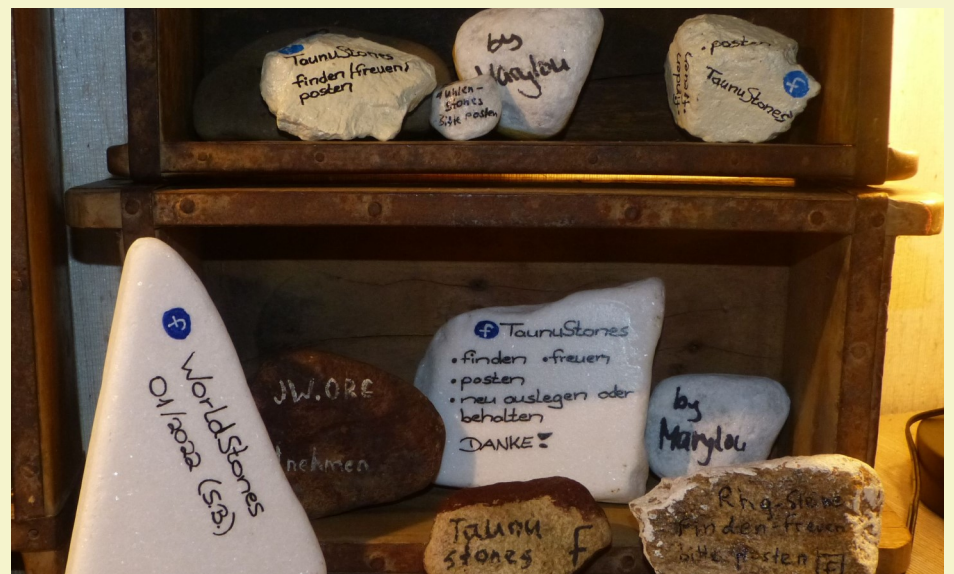 TaunuStones
finden/freuen/
posten
by
Marylou
Stones
Bitte posten
• posten
TaunuStones
f
f
WorldStones
01/2022 (S.B)
JW.ORG
nehmen
f TaunuStones
• finden • freuen
• posten
• neu auslegen oder
behalten
DANKE!
by
Marylou
Taunu
stones f
Rhg-Stone
finden-freuen
bitte posten F